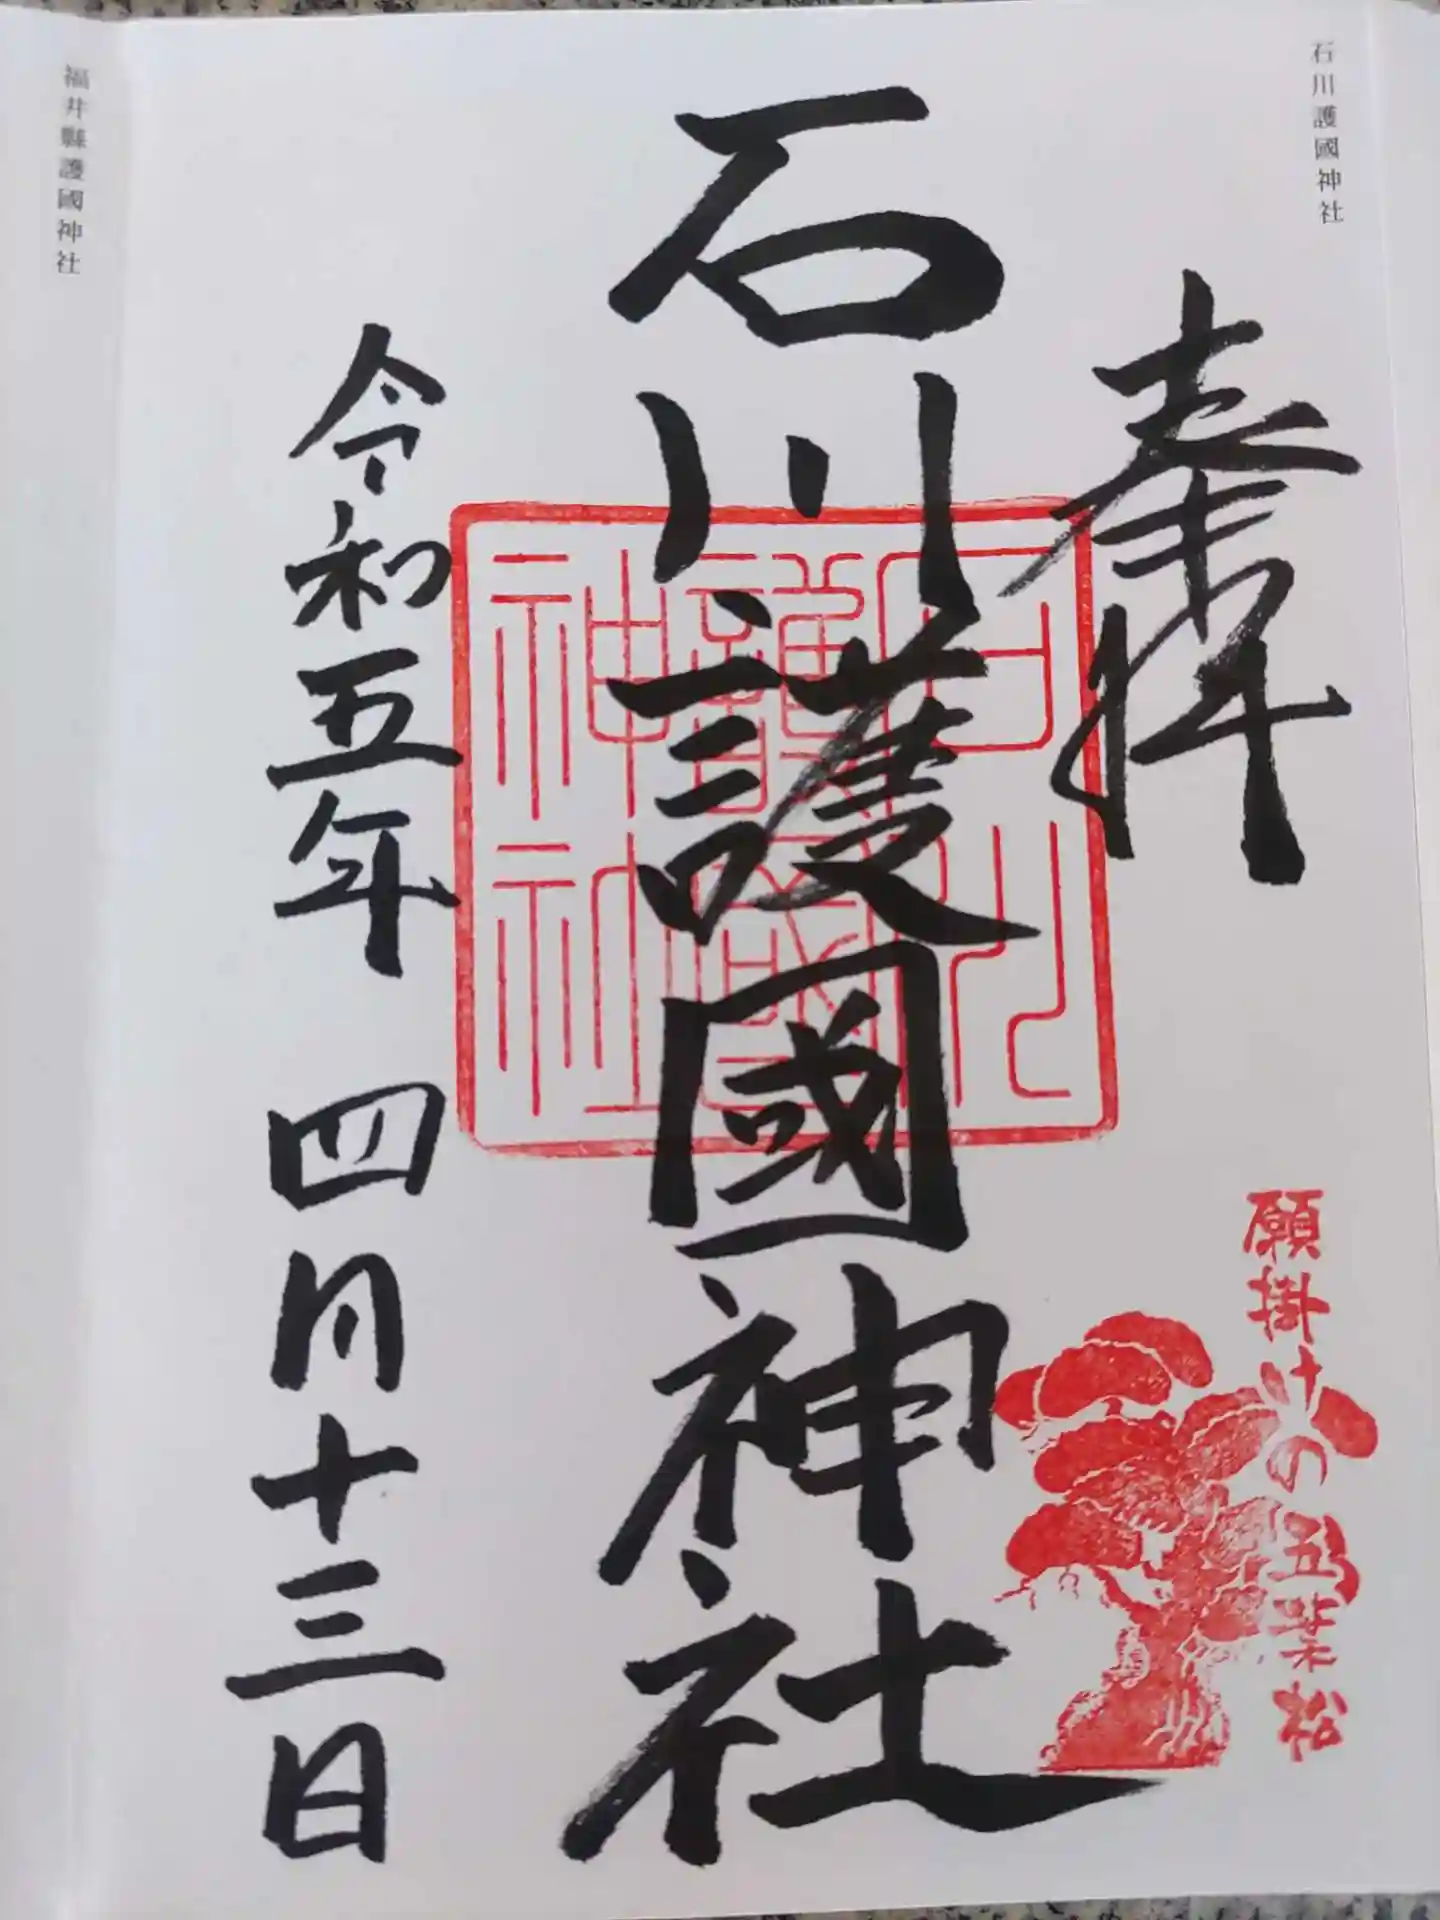 石川護國神社
奉拝
願掛けの五葉松
石川護國神社
石川
護國
神社
令和五年 四月十三日
福井縣護國神社